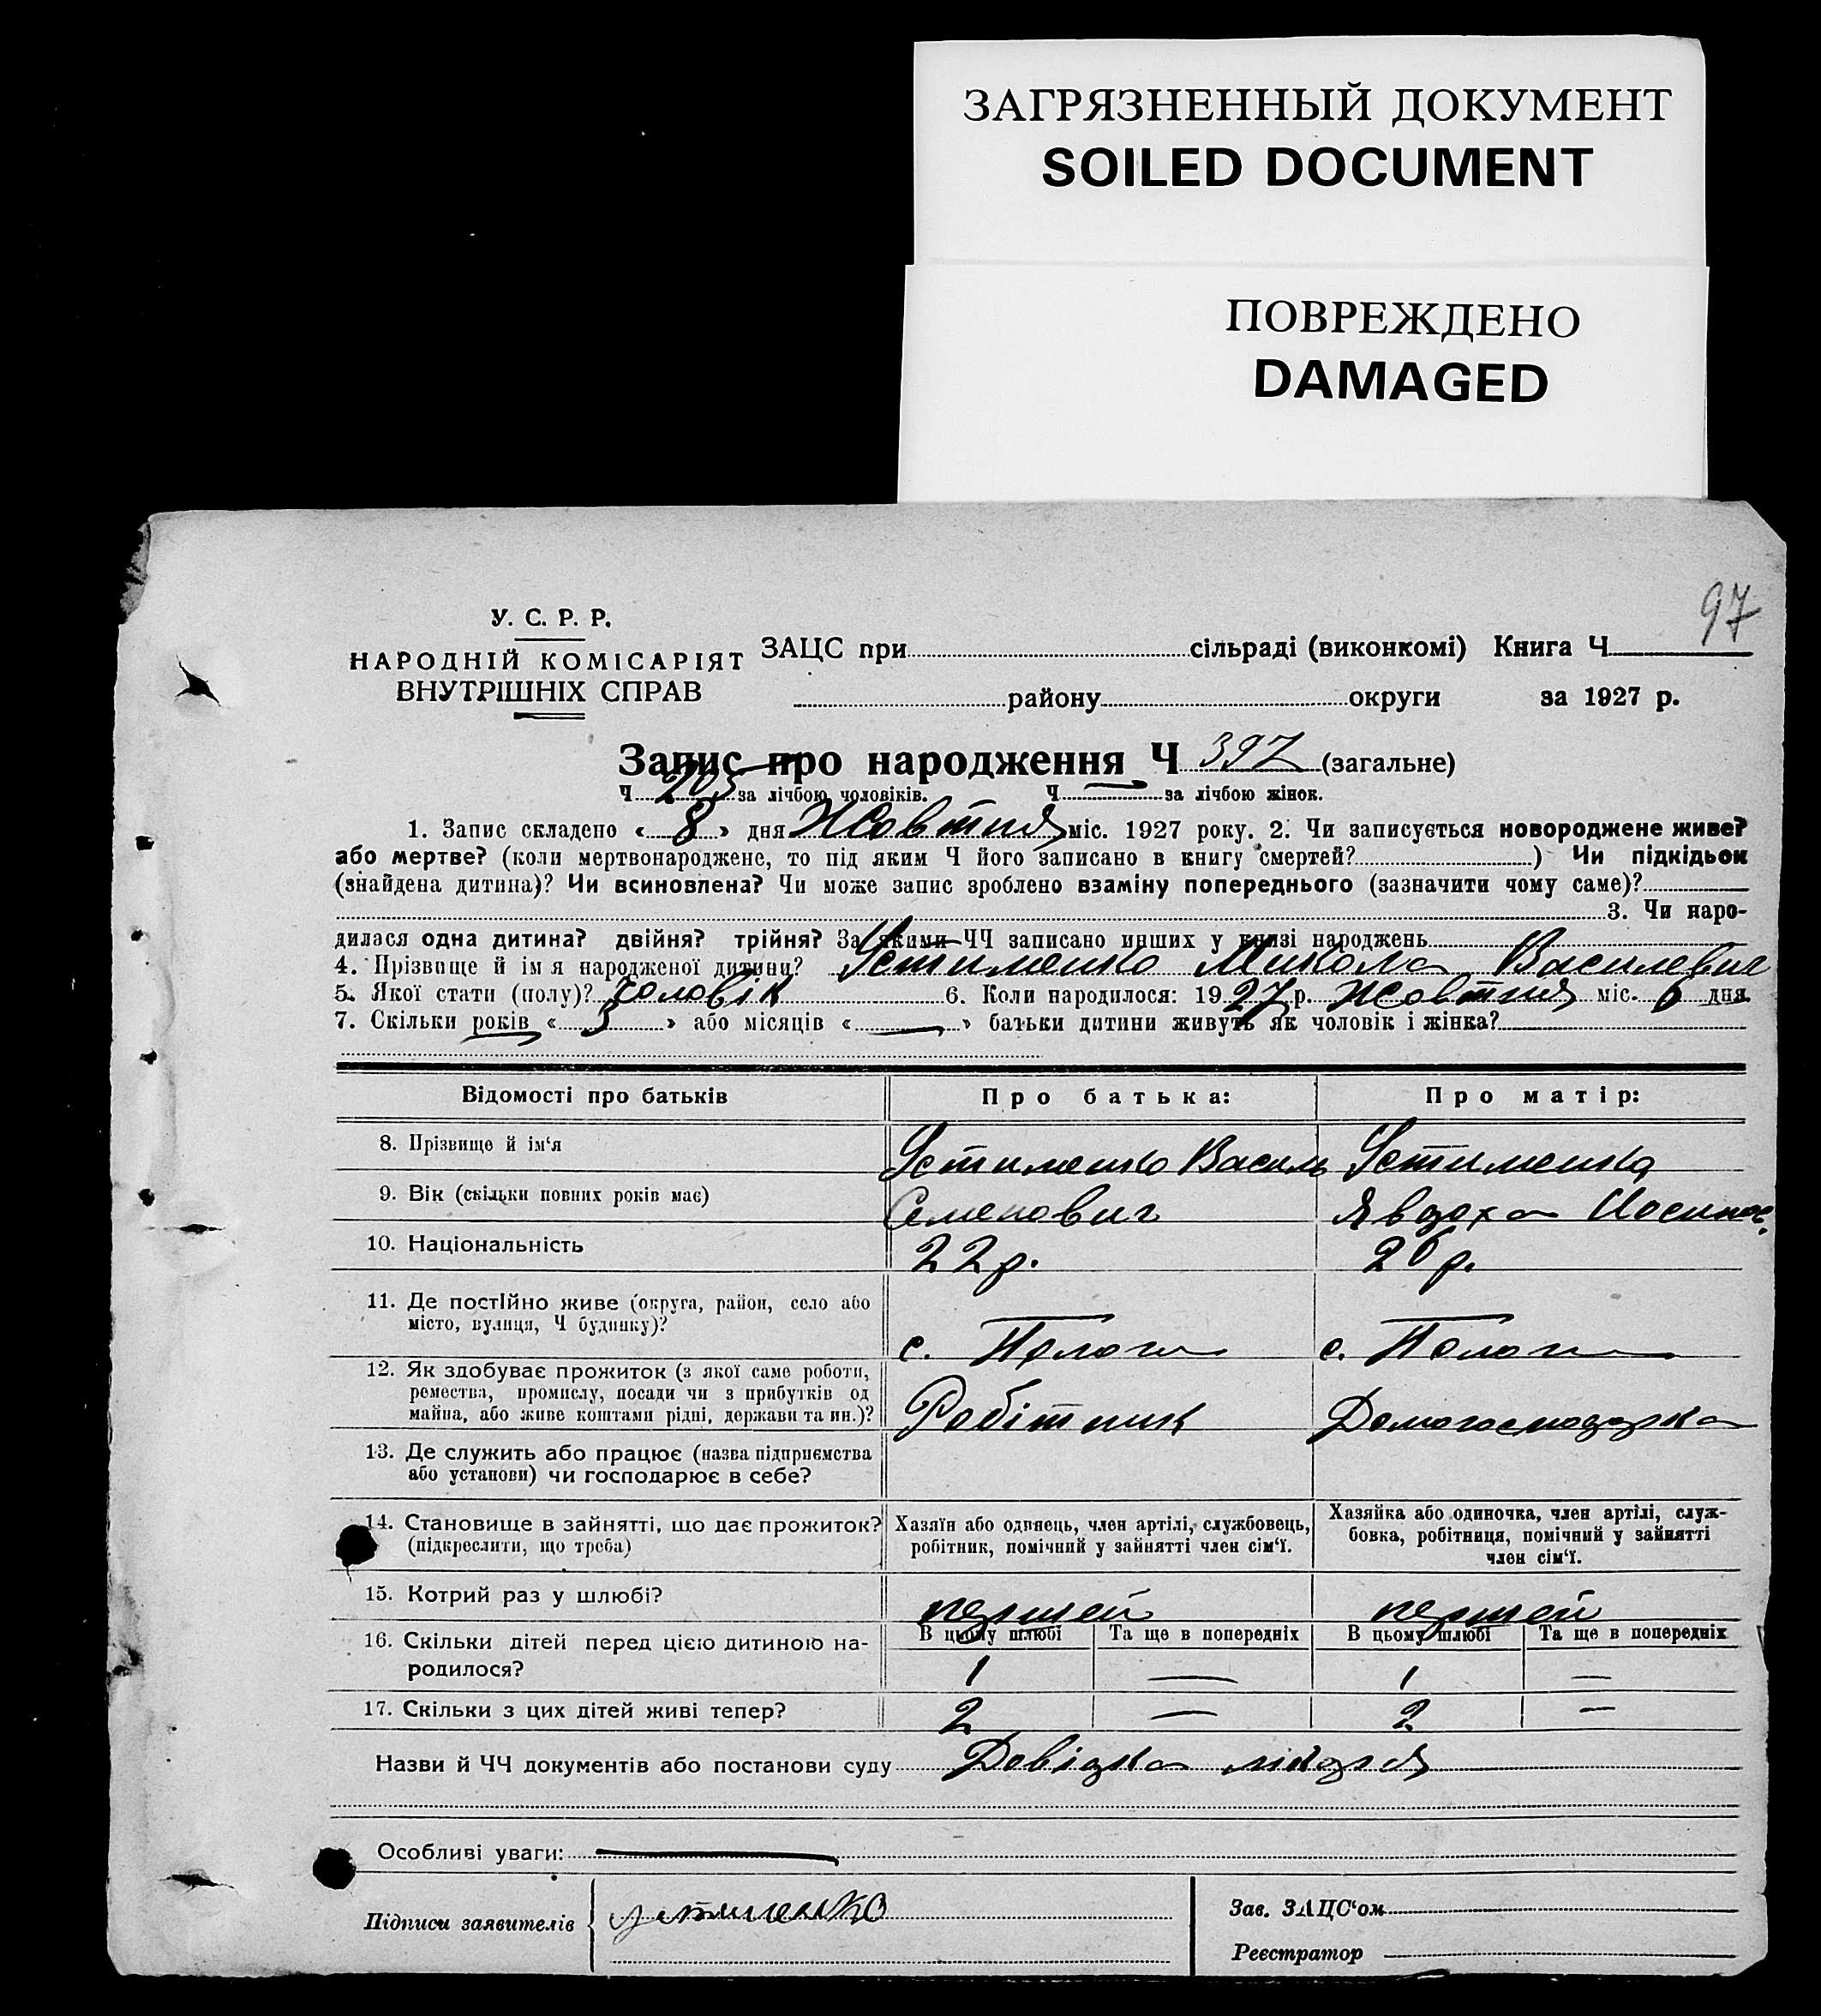 ЗАГРЯЗНЕННЫЙ ДОКУМЕНТ
SOILED DOCUMENT
ПОВРЕЖДЕНО
DAMAGED
97
У. С. Р. Р.
НАРОДНІЙ КОМІСАРІЯТ
ВНУТРІШНІХ СПРАВ
ЗАЦС при сільраді (виконкомі) Книга Ч
району округи за 1927 р.
Запис про народження Ч 397 (загальне)
Ч 205 за лічбою чоловіків. Ч — за лічбою жінок.
1. Запис складено « 8 » дня Жовтня міс. 1927 року. 2. Чи записується новороджене живе?
або мертве? (коли мертвонароджене, то під яким Ч його записано в книгу смертей? ) Чи підкідьок
(знайдена дитина)? Чи всиновлена? Чи може запис зроблено взаміну попереднього (зазначити чому саме)?
3. Чи наро-
дилася одна дитина? двійня? трійня? За якими ЧЧ записано инших у книзі народжень
4. Прізвище й ім я народженої дитини? Устименко Микола Василевич
5. Якої стати (полу)? чоловік 6. Коли народилося: 1927 р. Жовтня міс. 6 дня.
7. Скільки років « 3 » або місяців « — » батьки дитини живуть як чоловік і жінка?
Відомості про батьків Про батька: Про матір:
8. Прізвище й ім‘я Устименко Василь Устименко
9. Вік (скільки повних років має) Семенович Явдоха
10. Національність 22 р. 26 р.
11. Де постійно живе (округа, район, село або
місто, вулиця, Ч будинку)? с. Пологи с. Пологи
12. Як здобуває прожиток (з якої саме роботи,
ремества, промислу, посади чи з прибутків од
майна, або живе коштами рідні, держави та ин.)? Робітник Домогосподарка
13. Де служить або працює (назва підприємства
або установи) чи господарює в себе?
14. Становище в зайнятті, що дає прожиток?
(підкреслити, що треба)
Хазяїн або одинець, член артілі, службовець,
робітник, помічний у зайнятті член сім‘ї.
Хазяйка або одиночка, член артілі, служ-
бовка, робітниця, помічний у зайнятті
член сім‘ї.
15. Котрий раз у шлюбі? першей першей
16. Скільки дітей перед цією дитиною на-
родилося?
В цьому шлюбі Та ще в попередніх В цьому шлюбі Та ще в попередніх
1 — 1 —
17. Скільки з цих дітей живі тепер? 2 — 2 —
Назви й ЧЧ документів або постанови суду Довідка лікаря
Особливі уваги: —
Підписи заявителів Устименко
Зав. ЗАЦС‘ом
Реєстратор